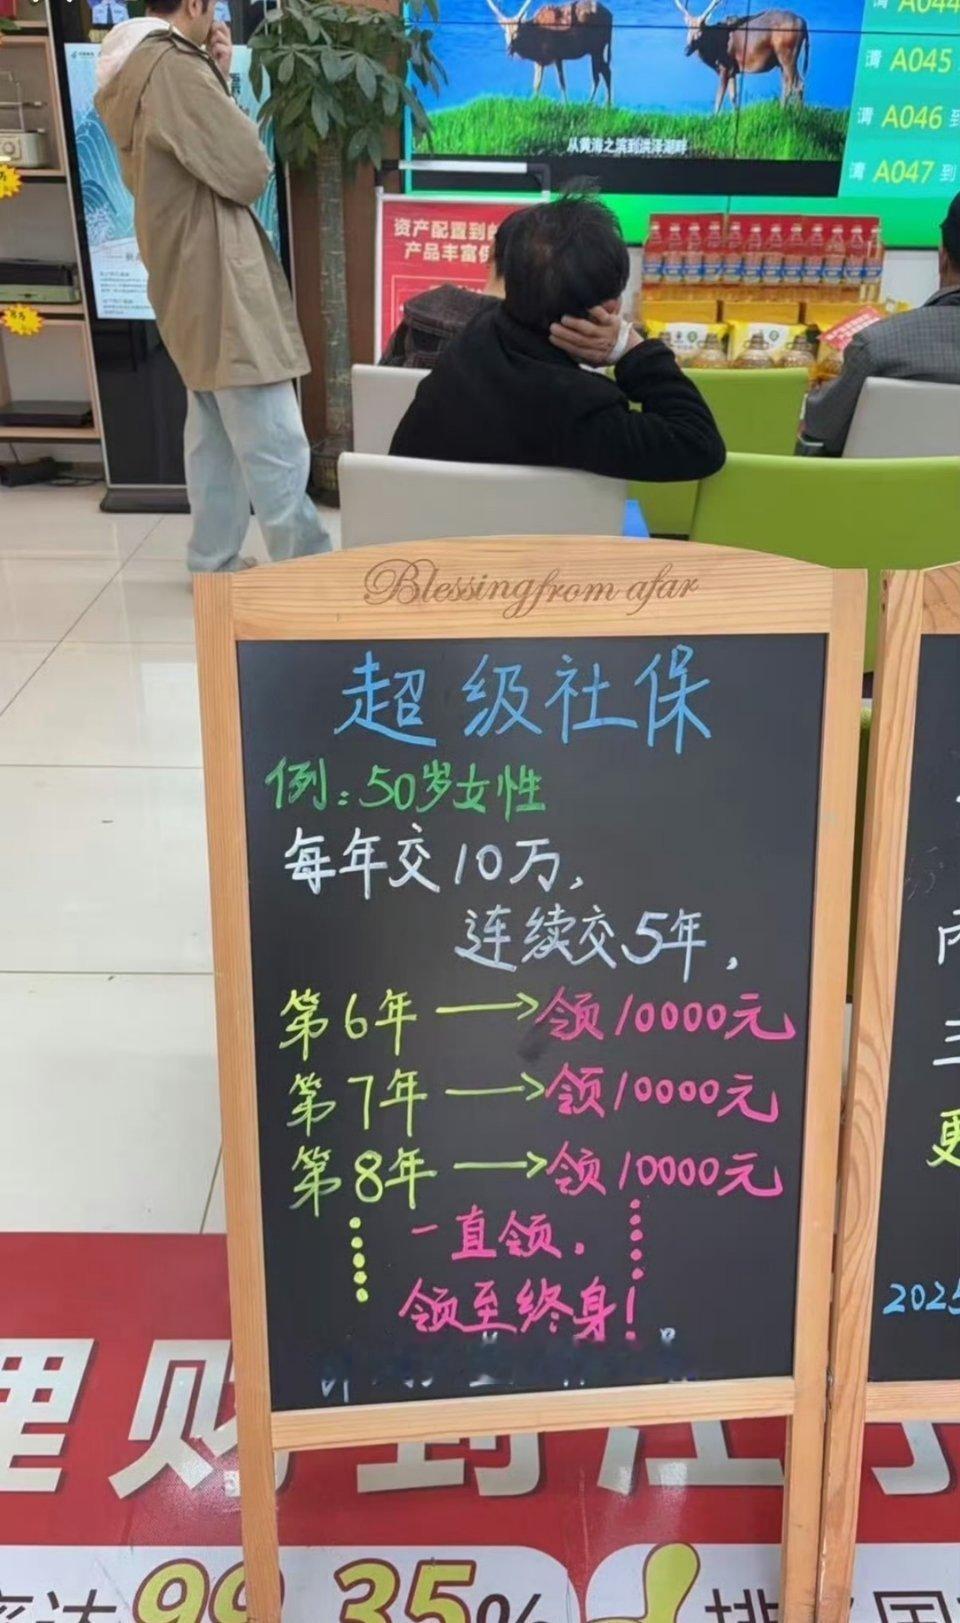 A044
请 A045
请 A046 到
请 A047 到
从黄海之滨到洪泽湖畔
资产配置到
产品丰富
Blessing from afar
超级社保
例：50岁女性
每年交10万，
连续交5年，
第6年→领10000元
第7年→领10000元
第8年→领10000元
一直领，
领至终身！
三
更
2025
理财到江
达99.35%